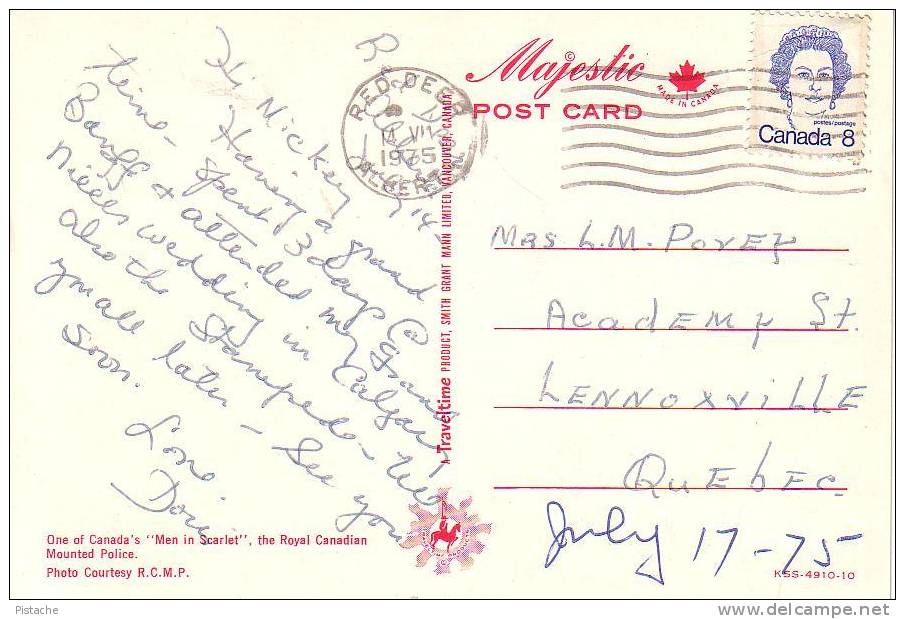 Hi Mickey
Having a grand
time - spent 3 days @
Banff & attended my Grand
Nieces wedding in Calgary
also the Stampede - Will
you all later - See you
soon.
Love
Doris
RED DEER
14 VII
1975
ALBERTA
14,
Majestic
©
POST CARD
MADE IN CANADA
postes/postage
Canada 8
Mrs L.M. Povey
Academy St.
Lennoxville
Quebec.
July 17-75
A Traveltime PRODUCT, SMITH GRANT MANN LIMITED, VANCOUVER, CANADA.
One of Canada's "Men in Scarlet", the Royal Canadian
Mounted Police.
Photo Courtesy R.C.M.P.
KSS-4910-10
Pistache
http://www.delcampe.net